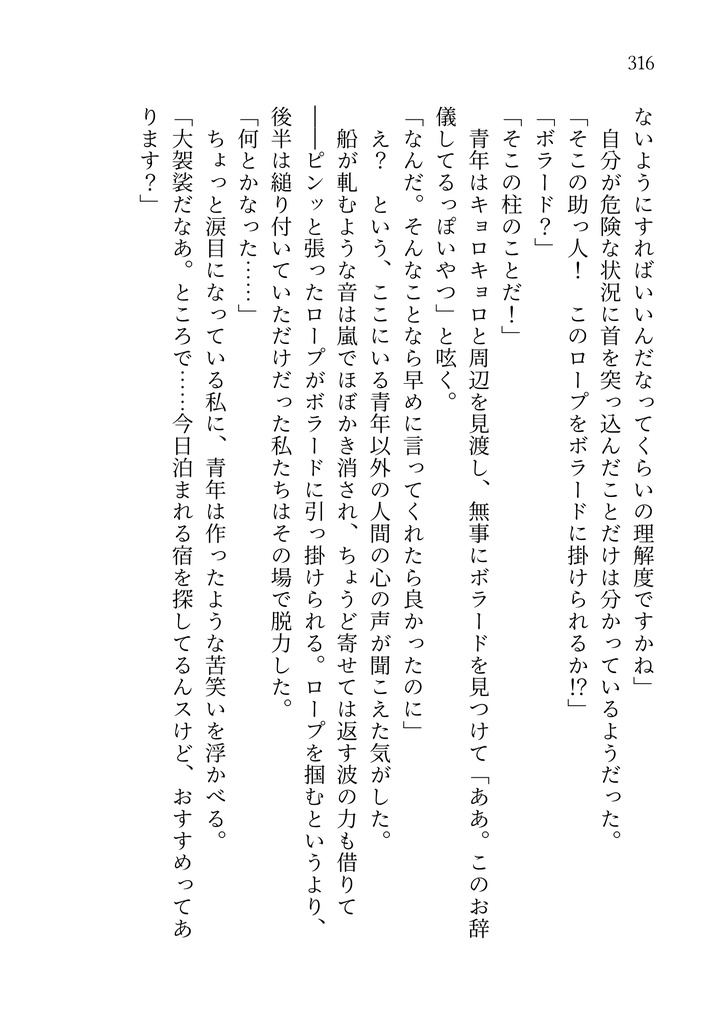 316
ないようにすればいいんだなってくらいの理解度ですかね」
　自分が危険な状況に首を突っ込んだことだけは分かっているようだった。
「そこの助っ人！　このロープをボラードに掛けられるか⁉」
「ボラード？」
「そこの柱のことだ！」
　青年はキョロキョロと周辺を見渡し、無事にボラードを見つけて「ああ。このお辞
儀してるっぽいやつ」と呟く。
「なんだ。そんなことなら早めに言ってくれたら良かったのに」
　え？　という、ここにいる青年以外の人間の心の声が聞こえた気がした。
　船が軋むような音は嵐でほぼかき消され、ちょうど寄せては返す波の力も借りて
――ピンッと張ったロープがボラードに引っ掛けられる。ロープを掴むというより、
後半は縋り付いていただけだった私たちはその場で脱力した。
「何とかなった……」
　ちょっと涙目になっている私に、青年は作ったような苦笑いを浮かべる。
「大袈裟だなあ。ところで……今日泊まれる宿を探してるんスけど、おすすめってあ
ります？」